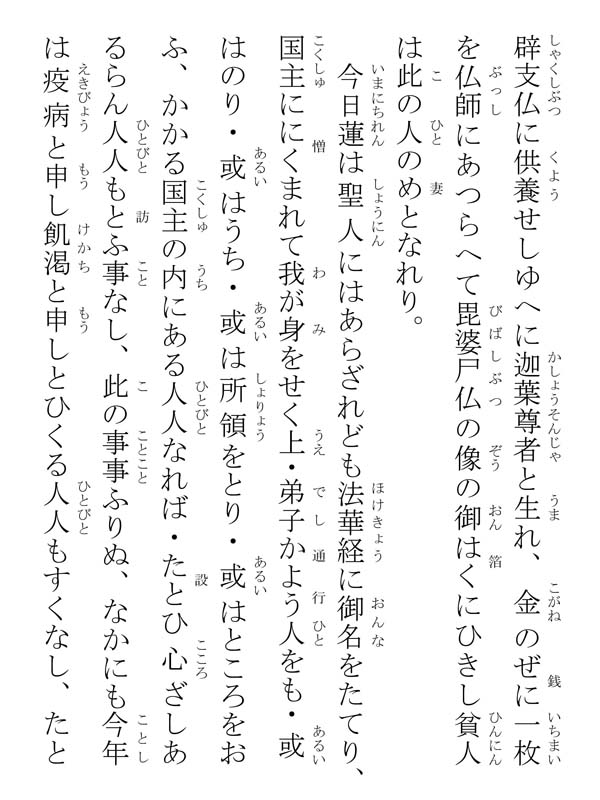 辟支仏に供養せしゆへに迦葉尊者と生れ、金のぜに一枚
を仏師にあつらへて毘婆尸仏の像の御はくにひきし貧人
は此の人のめとなれり。
今日蓮は聖人にはあらざれども法華経に御名をたてり、
国主ににくまれて我が身をせく上・弟子かよう人をも・或
はのり・或はうち・或は所領をとり・或はところをお
ふ、かかる国主の内にある人人なれば・たとひ心ざしあ
るらん人人もとふ事なし、此の事事ふりぬ、なかにも今年
は疫病と申し飢渇と申しとひくる人人もすくなし、たと